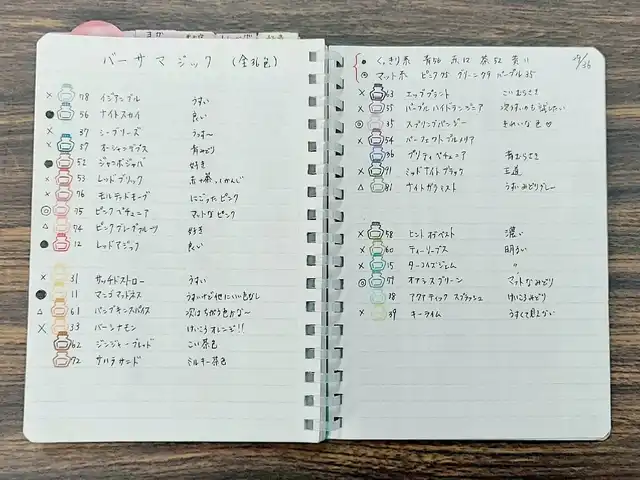 バーサマジック (全36色)
× 78 イジアンブル うすい
● 56 ナイトスカイ 良い
× 37 シーブリーズ うっす〜
× 57 オーシャンデプス 青みどり
● 52 ジャバジャバ 好き
× 53 レッドブリック 赤+茶ってかんじ
× 76 モルティドモーブ にごったピンク
◎ 75 ピンクペチュニア マットなピンク
△ 74 ピンクグレープフルーツ 好き
● 12 レッドマジック 良い
× 31 サッチドストロー うすい
● 11 マンゴマッドネス うすいけど他にいい色なし
△ 61 パンプキンスパイス 次はちがう色かな〜
× 33 パーシナモン けいこうオレンジ!!
62 ジンジャーブレッド こい茶色
72 サハラサンド ミルキー茶色
● くっきり系 青56 赤12 茶52 黄11
◎ マット系 ピンク75 グリーン79 パープル35
25/36
× 63 エッグプラント こいむらさき
× 55 パープルハイドランジア 次うすいかも試したい
◎ 35 スプリングパンジー きれいな色♡
× 54 パーフェクトプルメリア
36 プリティペチュニア 青むらさき
× 91 ミッドナイトブラック 王道
△ 81 ナイトガゥミスト うすいみどりグレー
× 58 ヒントオブペスト 濃い
× 60 ティーリーブス 明るい
× 15 ターコイズジェム 〃
◎ 79 オアシスグリーン マットなみどり
38 アクアティックスプラッシュ けいこうみどり
× 39 キーライム うすくて見えない